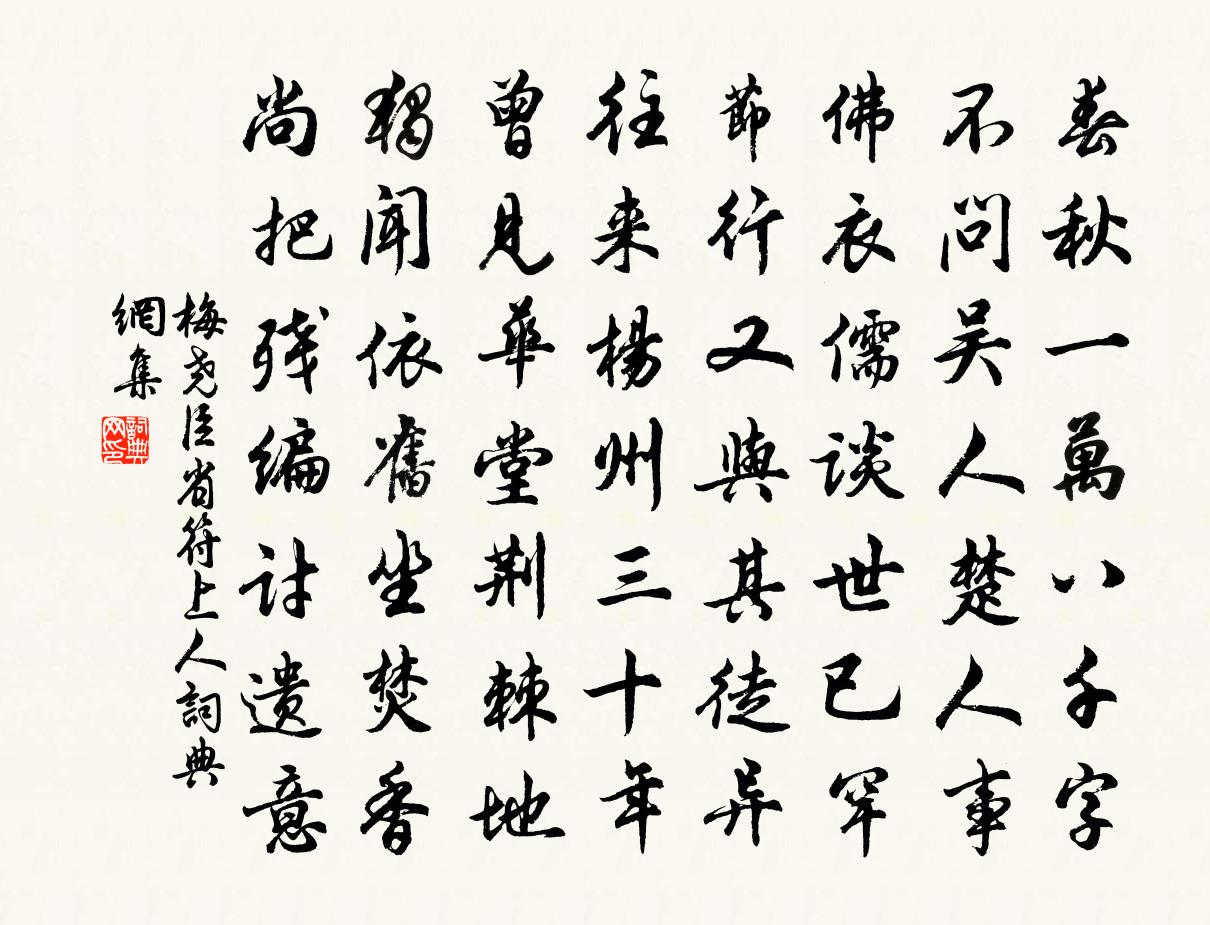 春秋一萬八千字
不問吴人楚人事
佛衣儒談世已罕
節行又與其徒异
往来楊州三十年
曾見華堂荆棘地
獨聞依舊坐焚香
尚把残编討遗意
梅尧臣省符上人詞典
網集
詞典网印